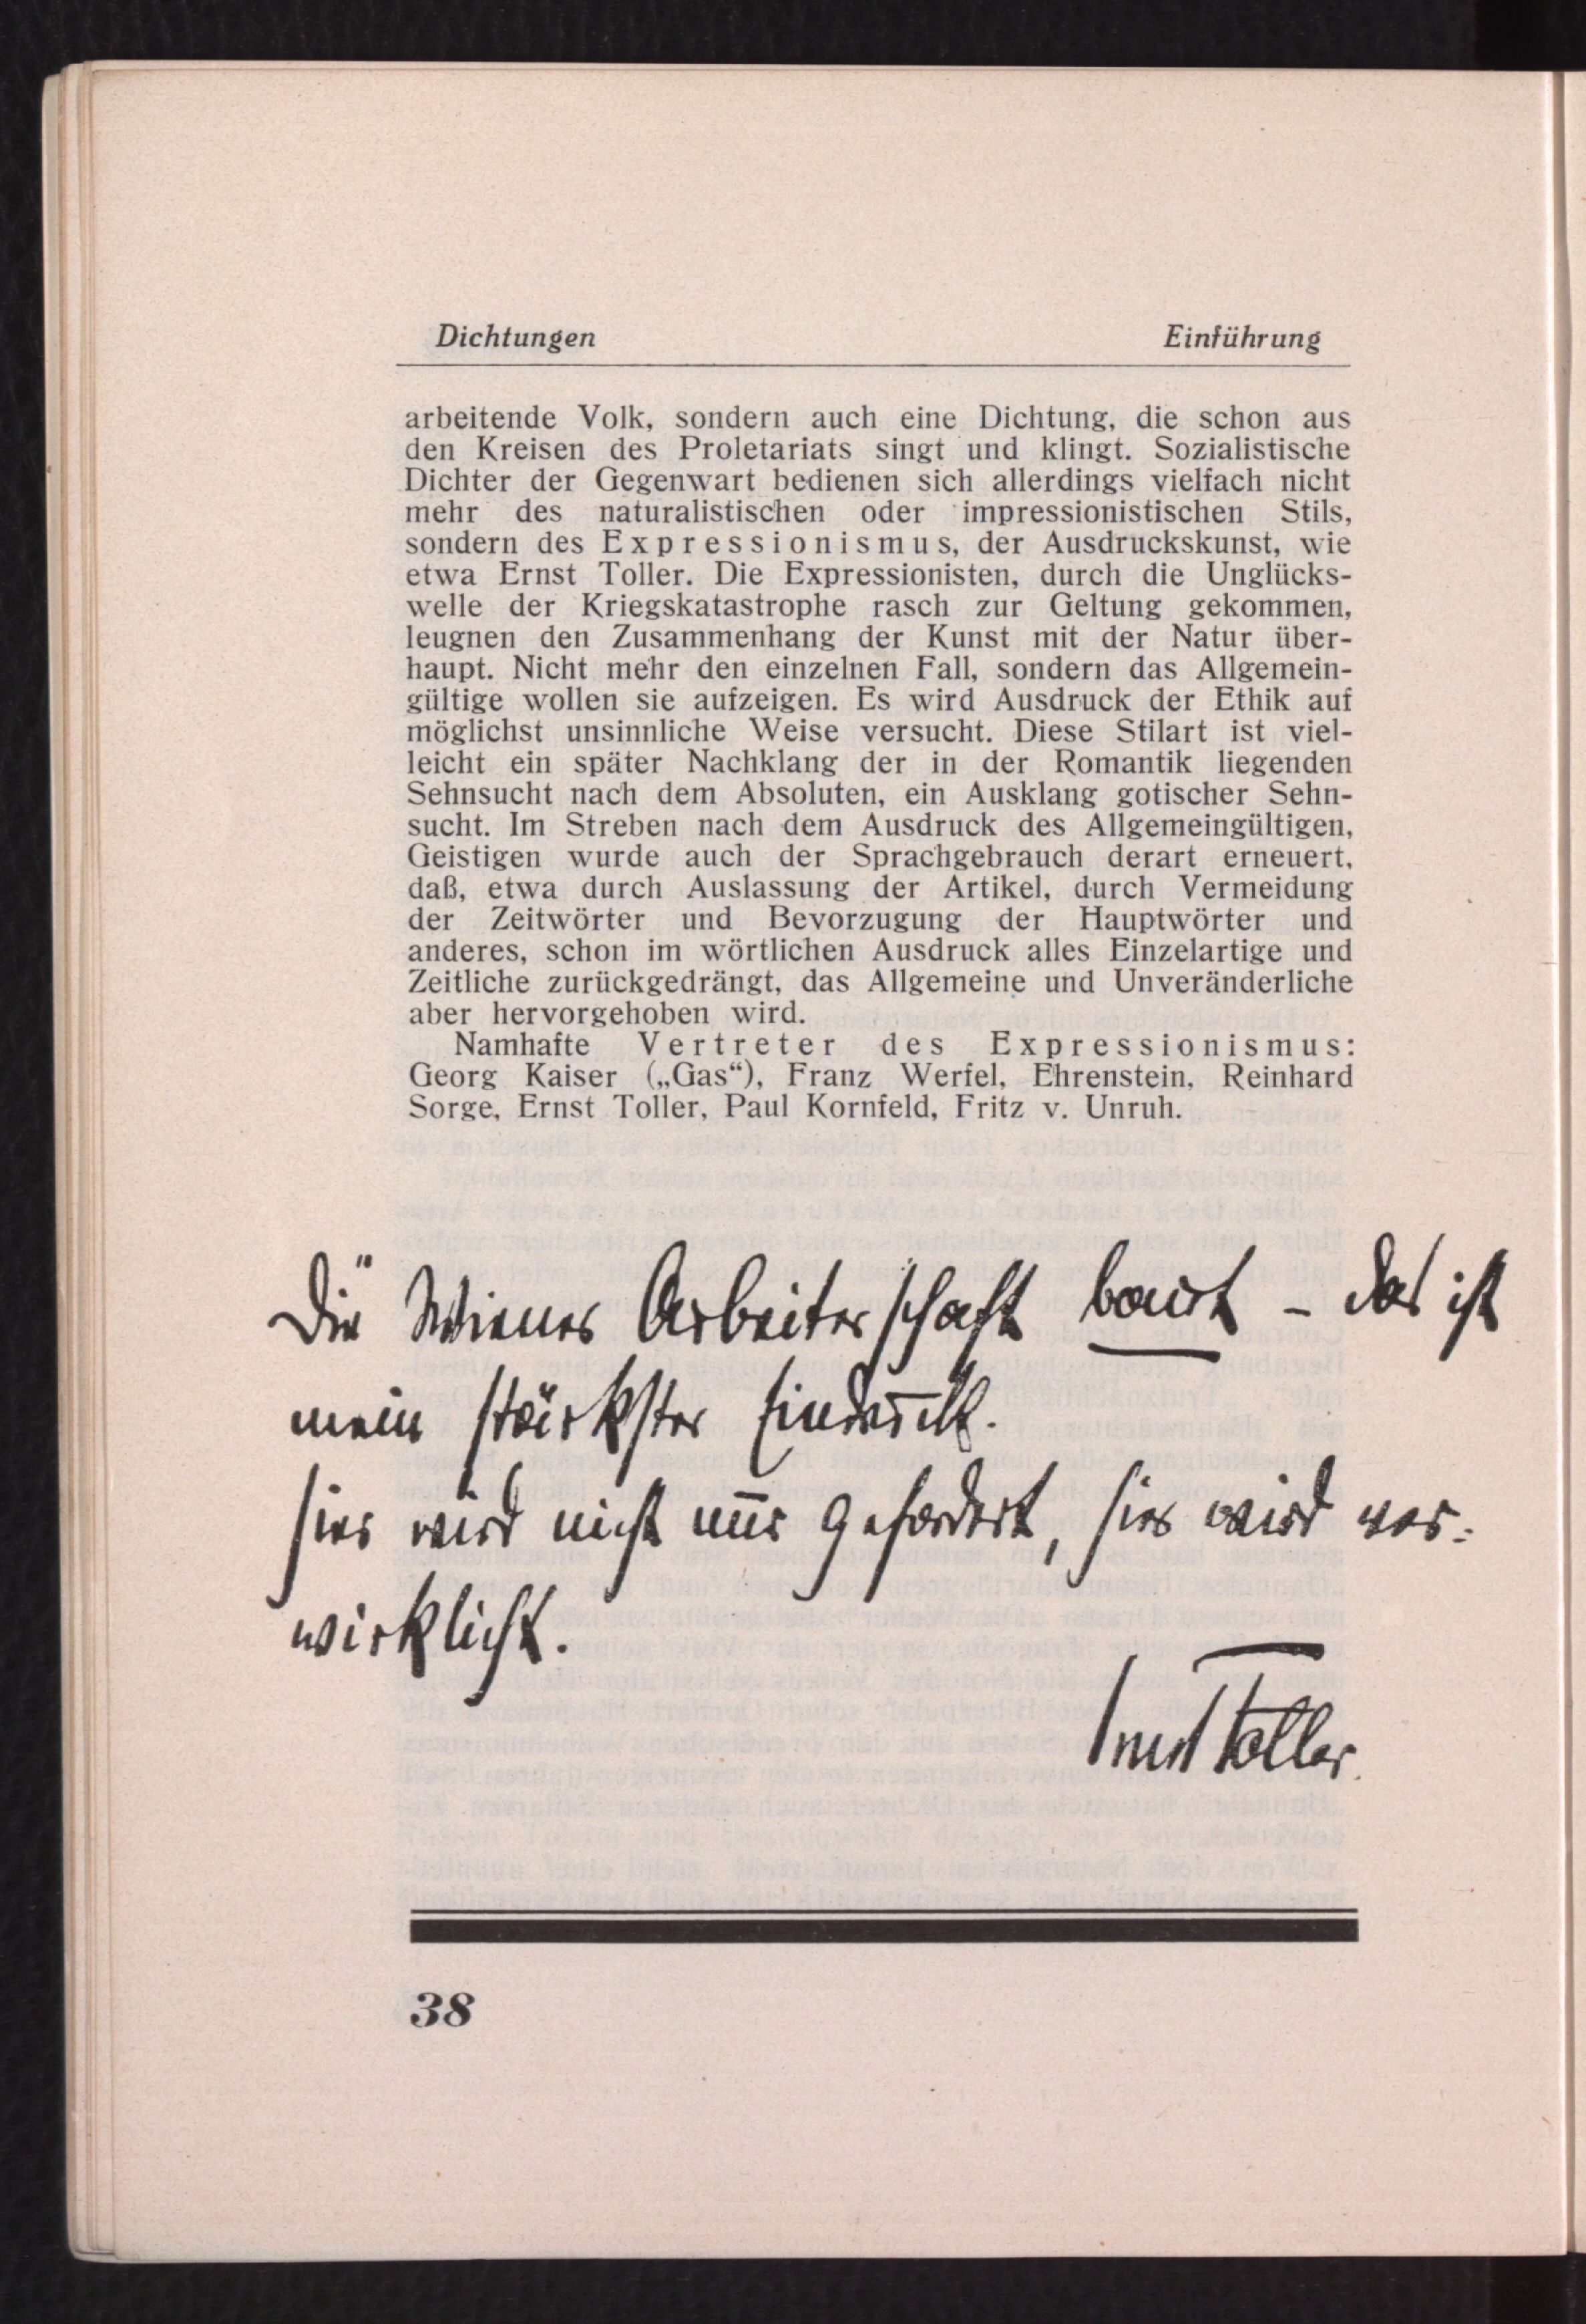 Dichtungen Einführung
arbeitende Volk, sondern auch eine Dichtung, die schon aus
den Kreisen des Proletariats singt und klingt. Sozialistische
Dichter der Gegenwart bedienen sich allerdings vielfach nicht
mehr des naturalistischen oder impressionistischen Stils,
sondern des Expressionismus, der Ausdruckskunst, wie
etwa Ernst Toller. Die Expressionisten, durch die Unglücks-
welle der Kriegskatastrophe rasch zur Geltung gekommen,
leugnen den Zusammenhang der Kunst mit der Natur über-
haupt. Nicht mehr den einzelnen Fall, sondern das Allgemein-
gültige wollen sie aufzeigen. Es wird Ausdruck der Ethik auf
möglichst unsinnliche Weise versucht. Diese Stilart ist viel-
leicht ein später Nachklang der in der Romantik liegenden
Sehnsucht nach dem Absoluten, ein Ausklang gotischer Sehn-
sucht. Im Streben nach dem Ausdruck des Allgemeingültigen,
Geistigen wurde auch der Sprachgebrauch derart erneuert,
daß, etwa durch Auslassung der Artikel, durch Vermeidung
der Zeitwörter und Bevorzugung der Hauptwörter und
anderes, schon im wörtlichen Ausdruck alles Einzelartige und
Zeitliche zurückgedrängt, das Allgemeine und Unveränderliche
aber hervorgehoben wird.
Namhafte Vertreter des Expressionismus:
Georg Kaiser („Gas“), Franz Werfel, Ehrenstein, Reinhard
Sorge, Ernst Toller, Paul Kornfeld, Fritz v. Unruh.
Die Wiener Arbeiterschaft baut – das ist
mein stärkster Eindruck.
Hier wird nicht nur gefordert, hier wird ver-
wirklicht.
Ernst Toller.
38